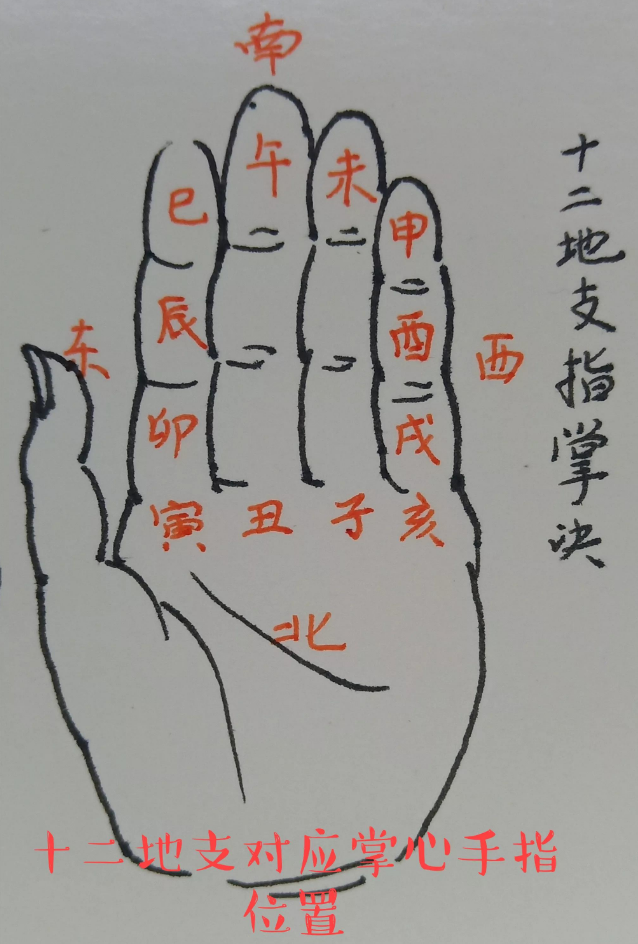 南
十二地支指掌决
午
未
巳
甲
辰
酉
东
西
卯
戌
寅 丑 子 亥
北
十二地支对应掌心手指
位置